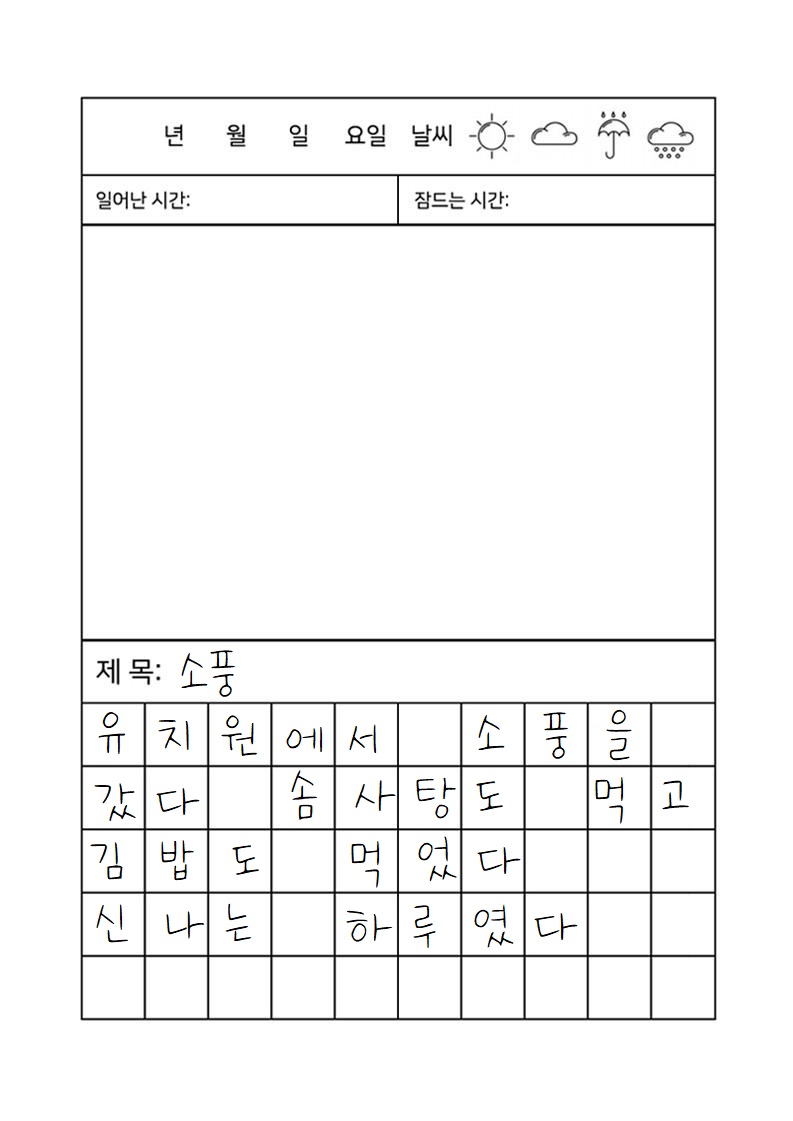 년 월 일 요일 날씨
일어난 시간: 잠드는 시간:
제 목: 소풍
유치원에서 소풍을
갔다 솜사탕도 먹고
김밥도 먹었다
신나는 하루였다